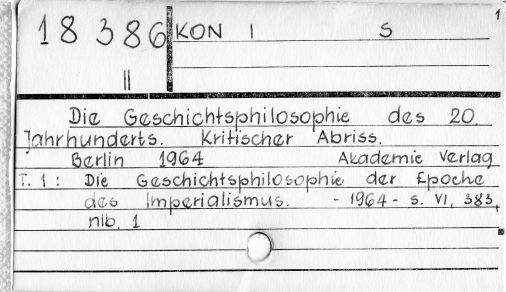 1
18 386 KON I S
II
Die Geschichtsphilosophie des 20.
Jahrhunderts. Kritischer Abriss.
Berlin 1964 Akademie Verlag
T. 1 : Die Geschichtsphilosophie der Epoche
des Imperialismus. - 1964 - s. VI, 383,
nlb. 1